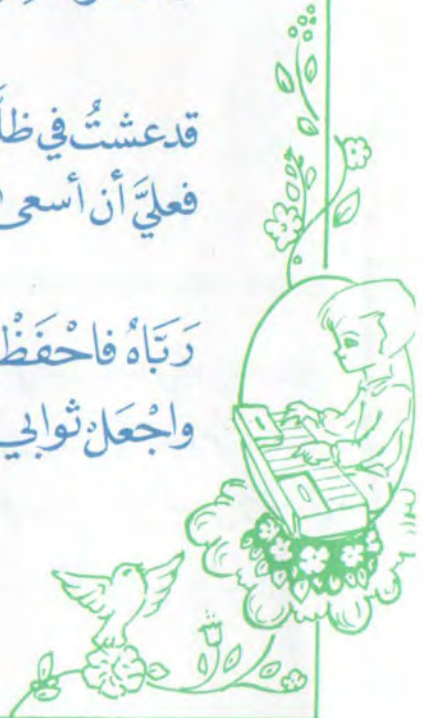 قد عشتُ في
فعليَّ أن أسعى
رَبَّاهُ فاحْفَظْ
واجْعَلْ ثوابي